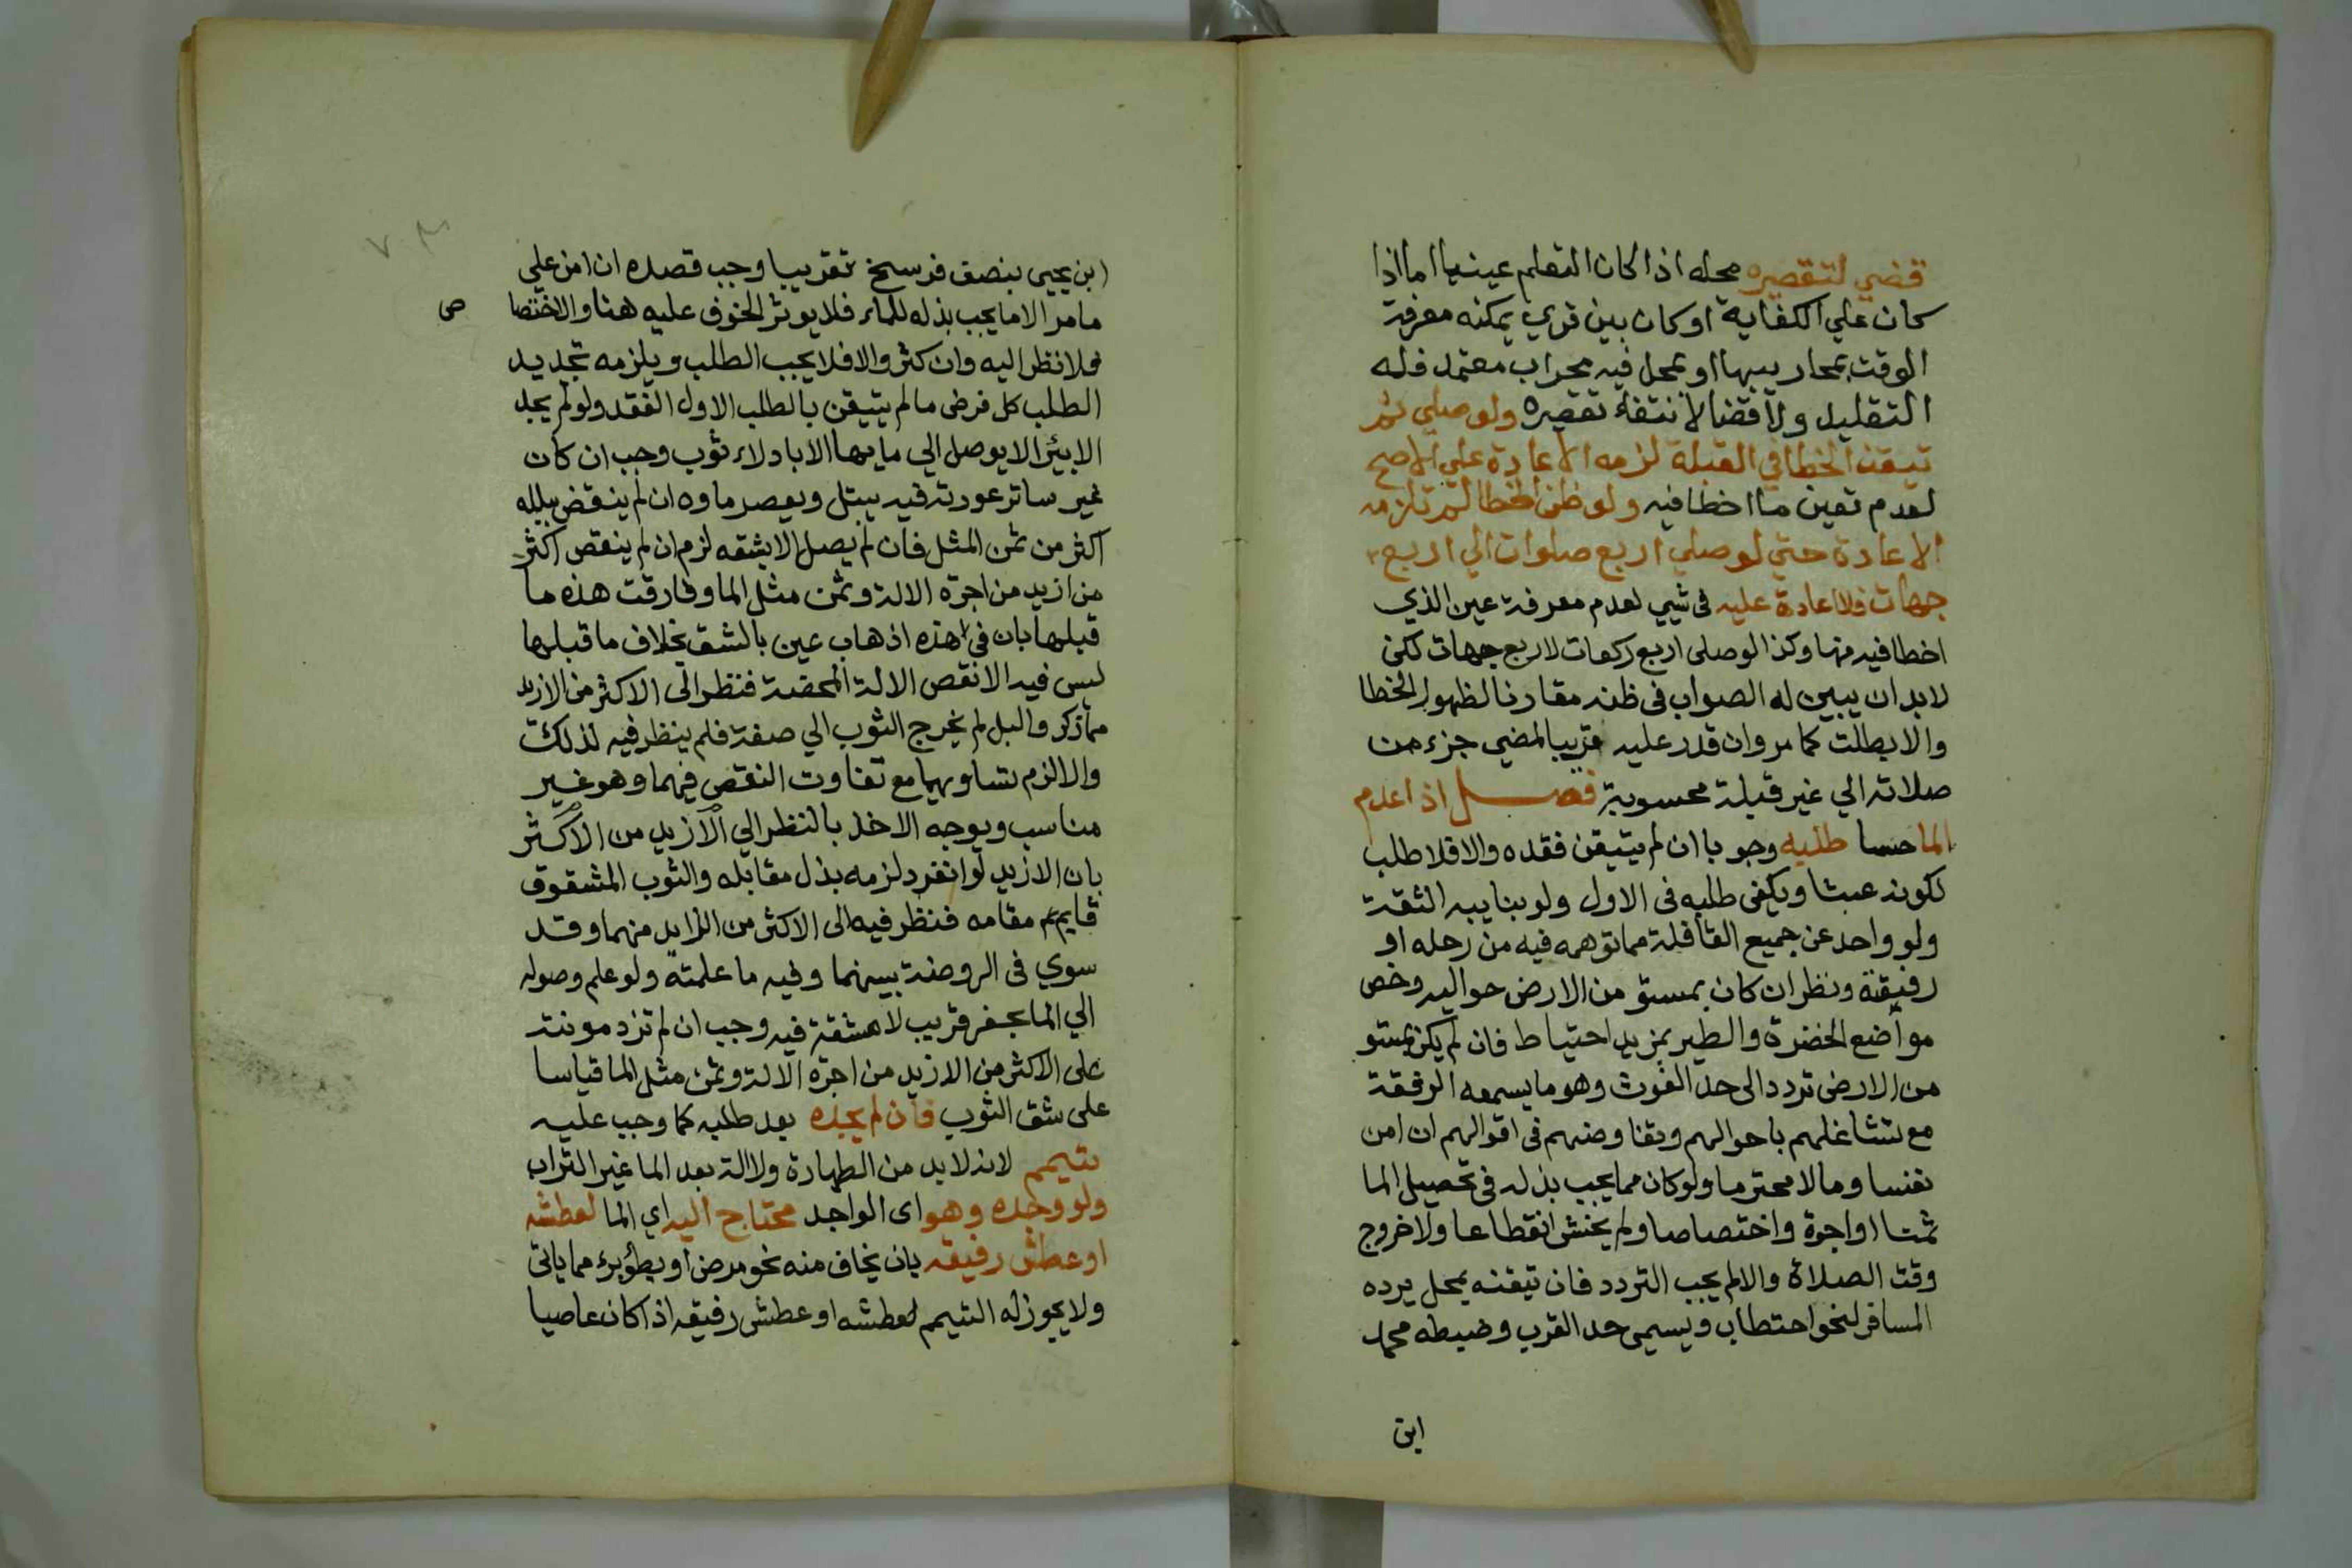 قضي لتقصيره محله اذا كان التعلم عينيا اما اذا
كان علي الكفاية او كان بين قري يمكنه معرفة
الوقت بمحاريبها او بمحل فيه محراب معتمد فله
التقليد ولا قضا لانتفاء تقصيره ولو صلي ثم
تيقن الخطا في القبلة لزمه الاعادة علي الاصح
لعدم تعين ما اخطا فيه ولو ظن الخطا لم تلزمه
الاعادة حتي لو صلي اربع صلوات الي اربع
جهات فلا اعادة عليه في شيي لعدم معرفة عين الذي
اخطا فيه منها وكذا لو صلى اربع ركعات لاربع جهات لكن
لا بد ان يبين له الصواب في ظنه مقارنا لظهور الخطا
والا بطلت كما مر وان قدر عليه قريبا لمضي جزء من
صلاته الي غير قبلة محسوبة فصل اذا عدم
الما حسا طلبه وجوبا ان لم يتيقن فقده والا فلا طلب
لكونه عبثا ويكفي طلبه في الاول ولو بنايبه الثقة
ولو واحد عن جميع القافلة مما توهمه فيه من رحله او
رفيقته ونظر ان كان بمستو من الارض حواليه وخص
مواضع الخضرة والطير بمزيد احتياط فان لم يكن بمستو
من الارض تردد الى حد الغوث وهو ما يسمعه الرفقة
مع تشاغلهم باحوالهم وتفاوضهم في اقوالهم ان امن
نفسا ومالا محترما ولو كان مما يجب بذله في تحصيل الما
ثمنا او اجرة واختصاصا ولم يخش انقطاعا ولا خروج
وقت الصلاة والا لم يجب التردد فان تيقنه بمحل يرده
المسافر لنحو احتطاب ويسمى حد القرب وضبطه محمد
ابن
ابن يحيى بنصف فرسخ تقريبا وجب قصده ان امن علي
ما مر الا ما يجب بذله للماء فلا يوثر الخوف عليه هنا والاختصا
ص
فلا نظر اليه وان كثر والا فلا يجب الطلب ويلزمه تجديد
الطلب كل فرض ما لم يتيقن بالطلب الاول الفقد ولو لم يجد
الا بيئرا لا يوصل الي مايها الا بادلاء ثوب وجب ان كان
غير ساتر عورته فيه يبتل ويعصر ماوه ان لم ينقض ببلله
اكثر من ثمن المثل فان لم يصل الا بشقه لزم ان لم ينقص اكثر
من ازيد من اجرة الالة وثمن مثل الما وفارقت هذه ما
قبلها بان في هذه اذهاب عين بالشق بخلاف ما قبلها
ليس فيه الا نقص الالة المحضة فنظر الى الاكثر من الازيد
مما ذكر والبل لم يخرج الثوب الي صفة فلم ينظر فيه لذلك
والا لزم تساويهما مع تفاوت النقص فيهما وهو غير
مناسب ويوجه الاخذ بالنظر الي الازيد من الاكثر
بان الازيد لو انفرد لزمه بذل مقابله والثوب المشقوق
قايم مقامه فنظر فيه الى الاكثر من الزايد منهما وقد
سوي في الروضة بينهما وفيه ما علمته ولو علم وصوله
الي الما بحفر قريب لا مشقة فيه وجب ان لم تزد مونته
على الاكثر من الازيد من اجرة الالة وثمن مثل الما قياسا
على شق الثوب فان لم يجده بعد طلبه كما وجب عليه
تيمم لانه لا بد من الطهارة ولا الة بعد الما غير التراب
ولو وجده وهو اى الواجد محتاج اليه اي الما لعطشه
او عطش رفيقه بان يخاف منه نحو مرض او بطؤ برء مما ياتى
ولا يجوز له التيمم لعطشه او عطش رفيقه اذا كان عاصيا